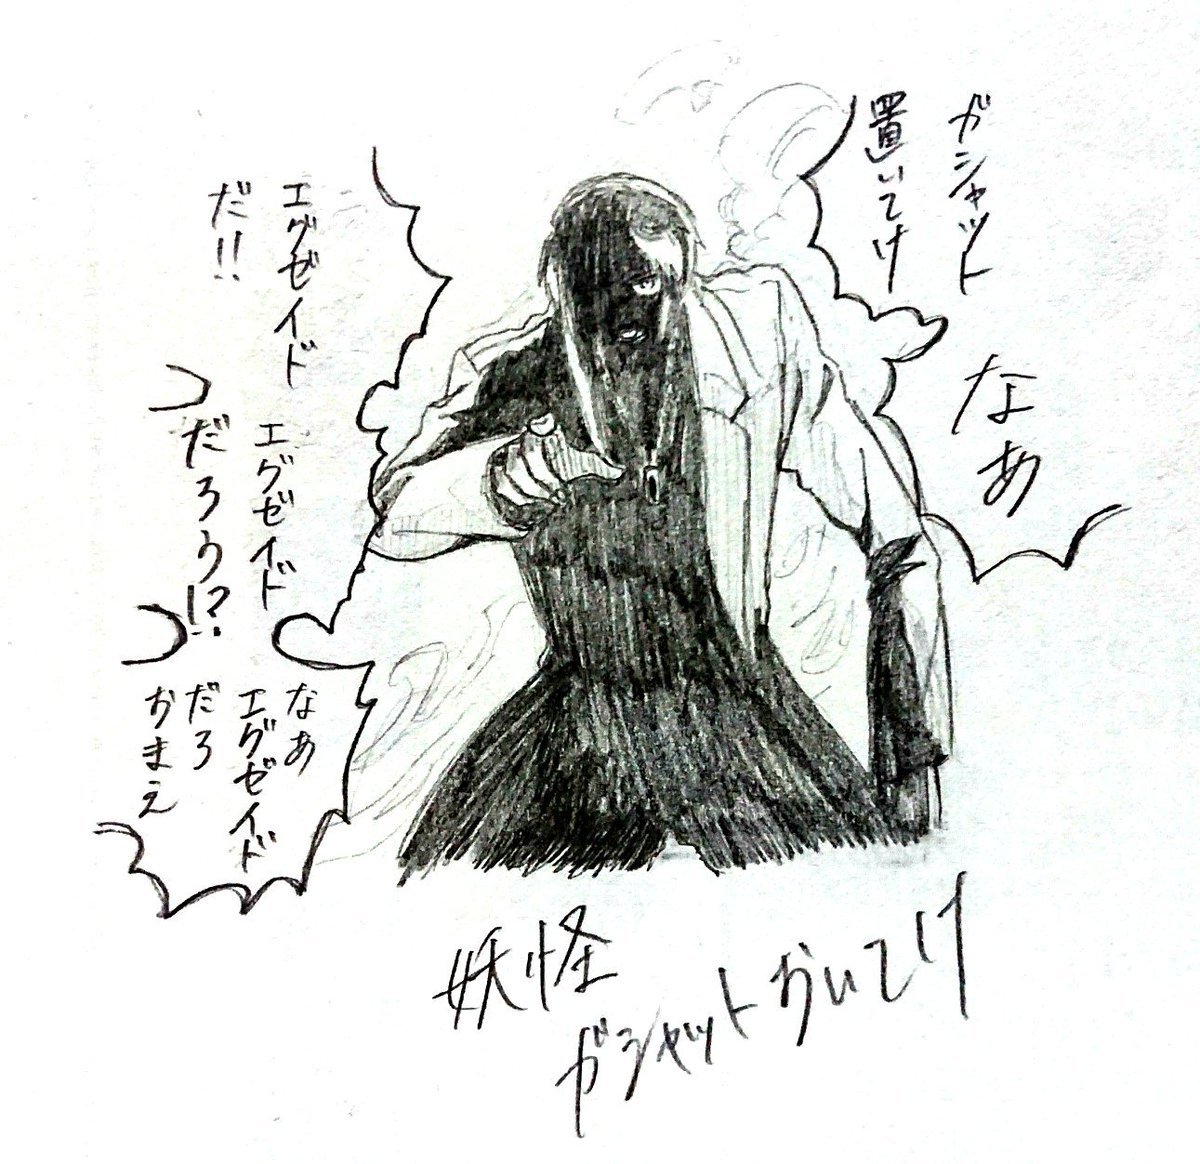 ガシャット
置いてけ
なあ
エグゼイド
だ!!
エグゼイド
だろう!?
なあ
エグゼイド
だろ
おまえ
妖怪
ガシャットおいてけ